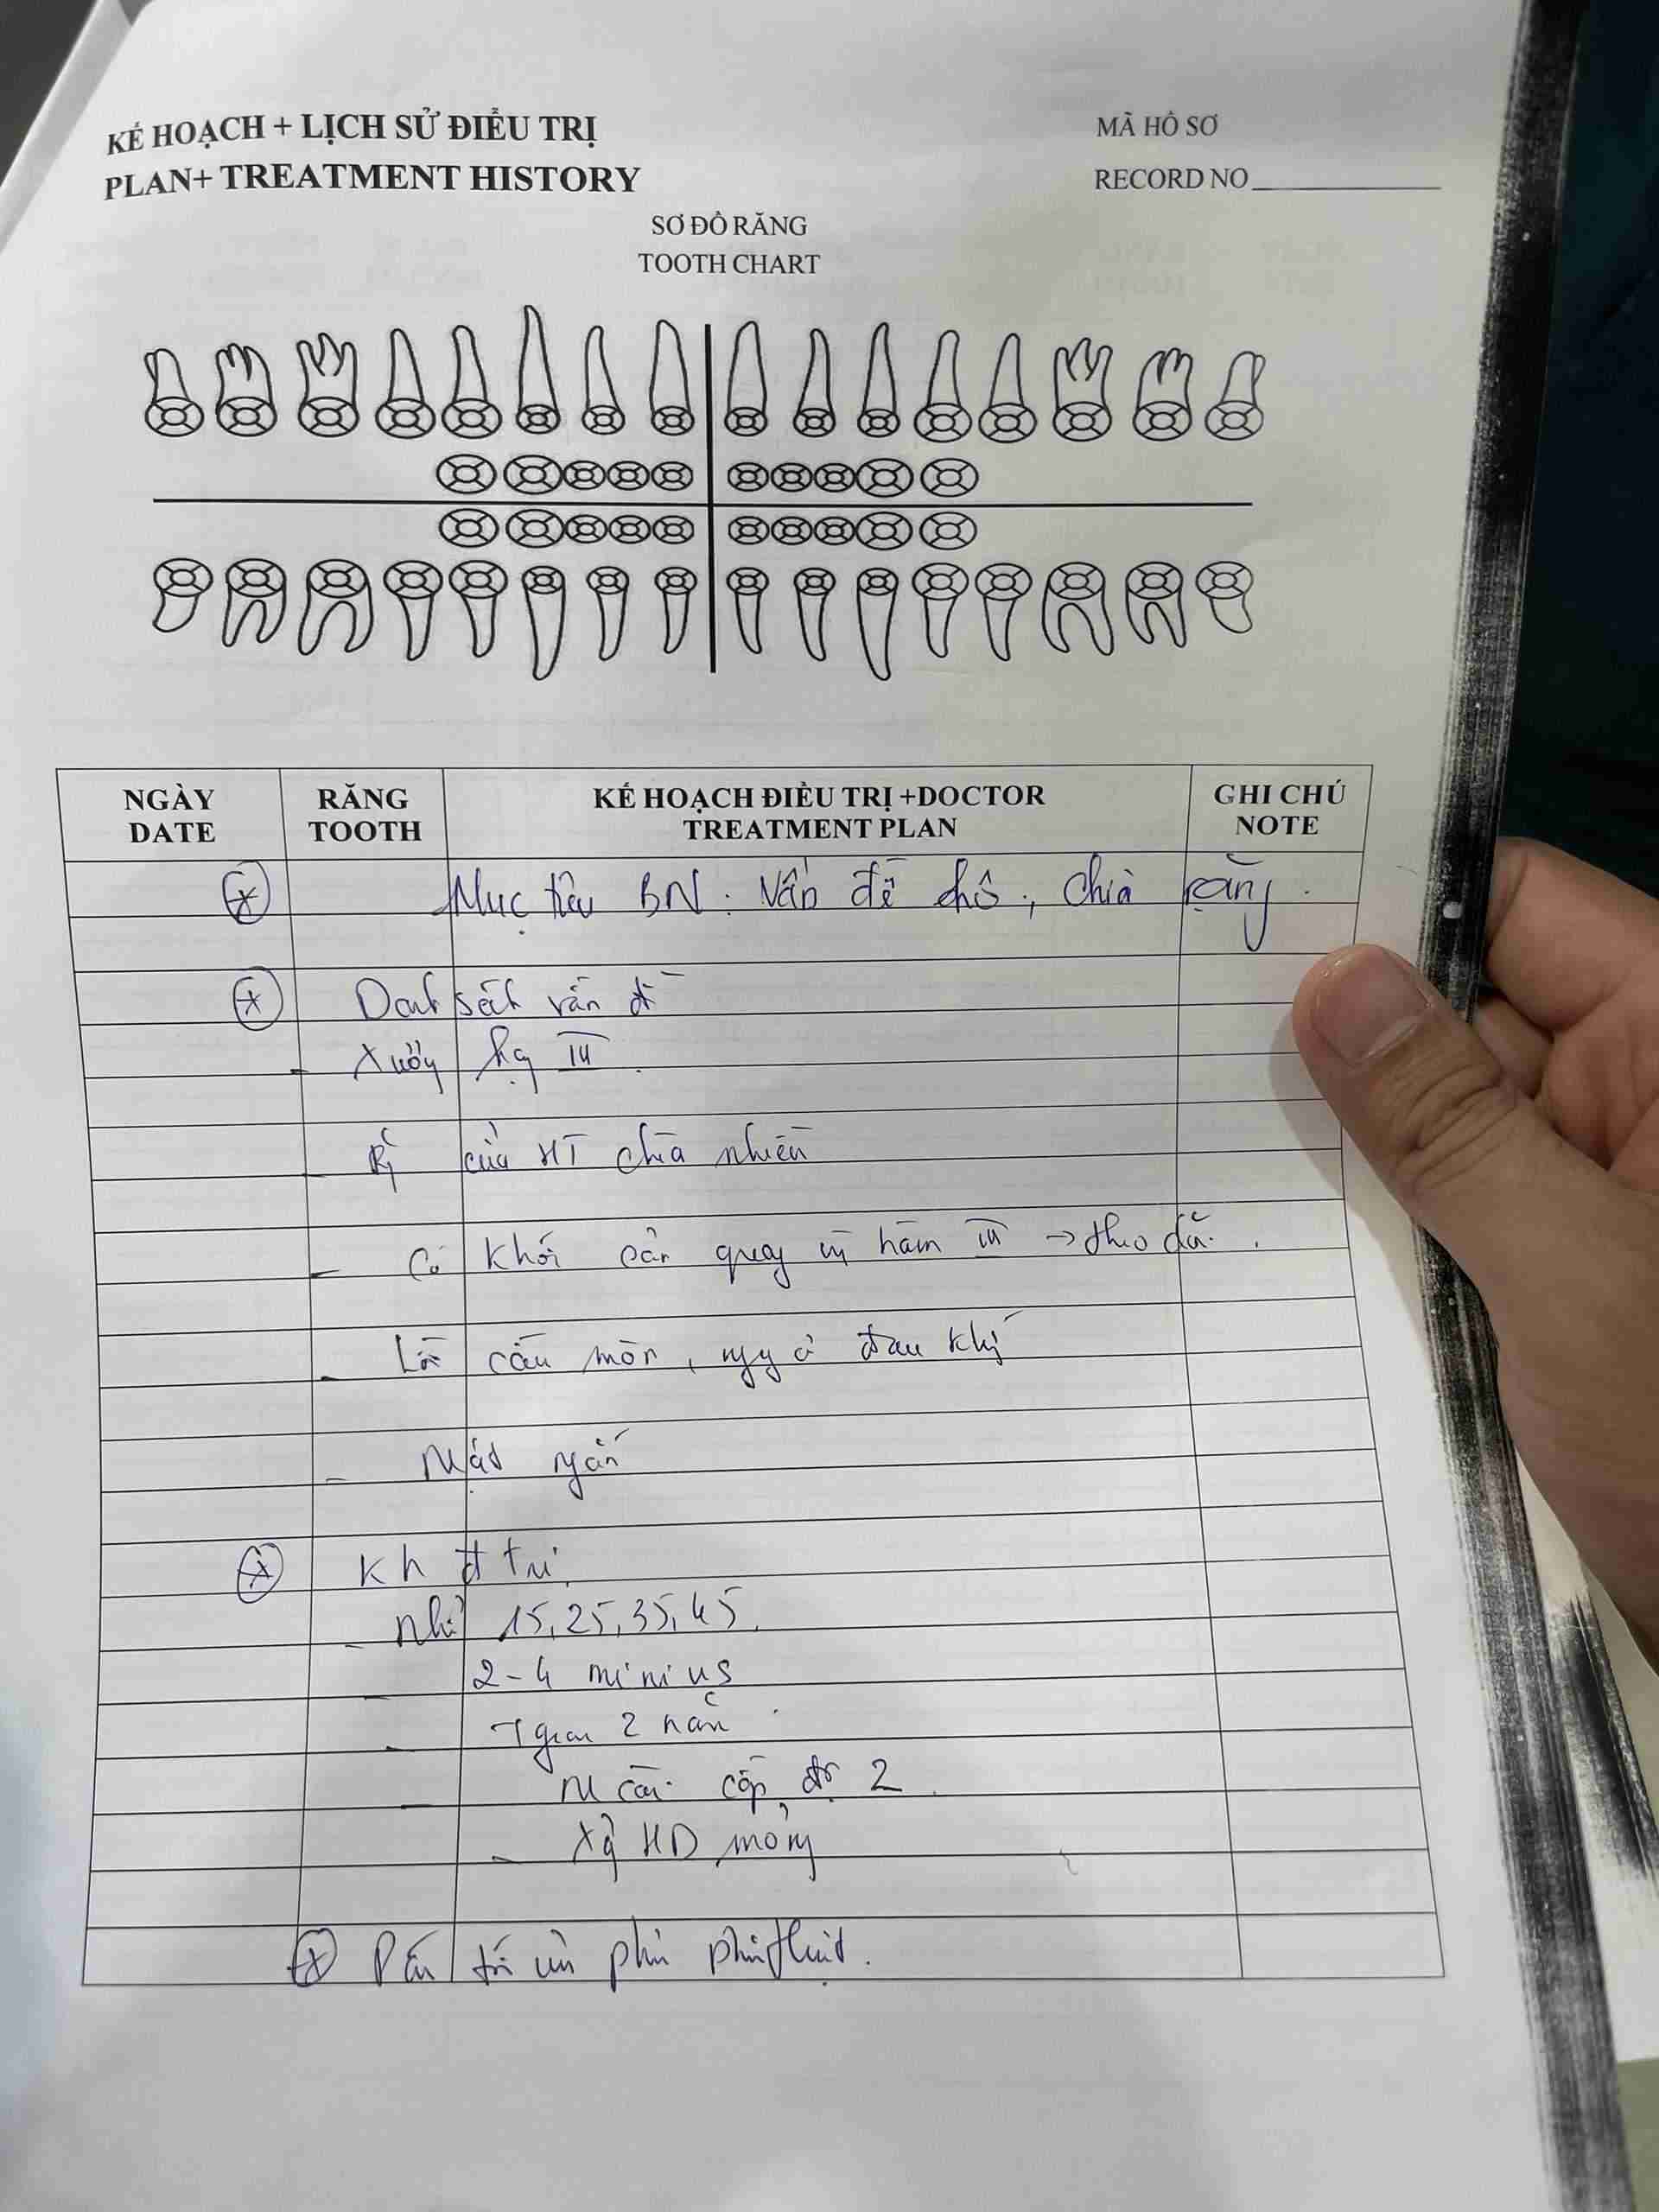 KẾ HOẠCH + LỊCH SỬ ĐIỀU TRỊ
PLAN+ TREATMENT HISTORY
MÃ HỒ SƠ
RECORD NO
SƠ ĐỒ RĂNG
TOOTH CHART
NGÀY DATE
RĂNG TOOTH
KẾ HOẠCH ĐIỀU TRỊ +DOCTOR TREATMENT PLAN
GHI CHÚ NOTE
Mục tiêu BN: Vấn đề hô, chìa răng.
Danh sách vấn đề
- Xương hạng III.
- R cửa HT chìa nhiều
- Có khối cản quang hàm III → theo dõi.
- Lồi cầu mòn, nguy cơ đau khớp
- Mặt ngắn
Kh đ trị
- nhổ 15, 25, 35, 45.
- 2-4 minivis
- Tgian 2 năm
- M cài cấp độ 2.
- HD mỏng
phủ